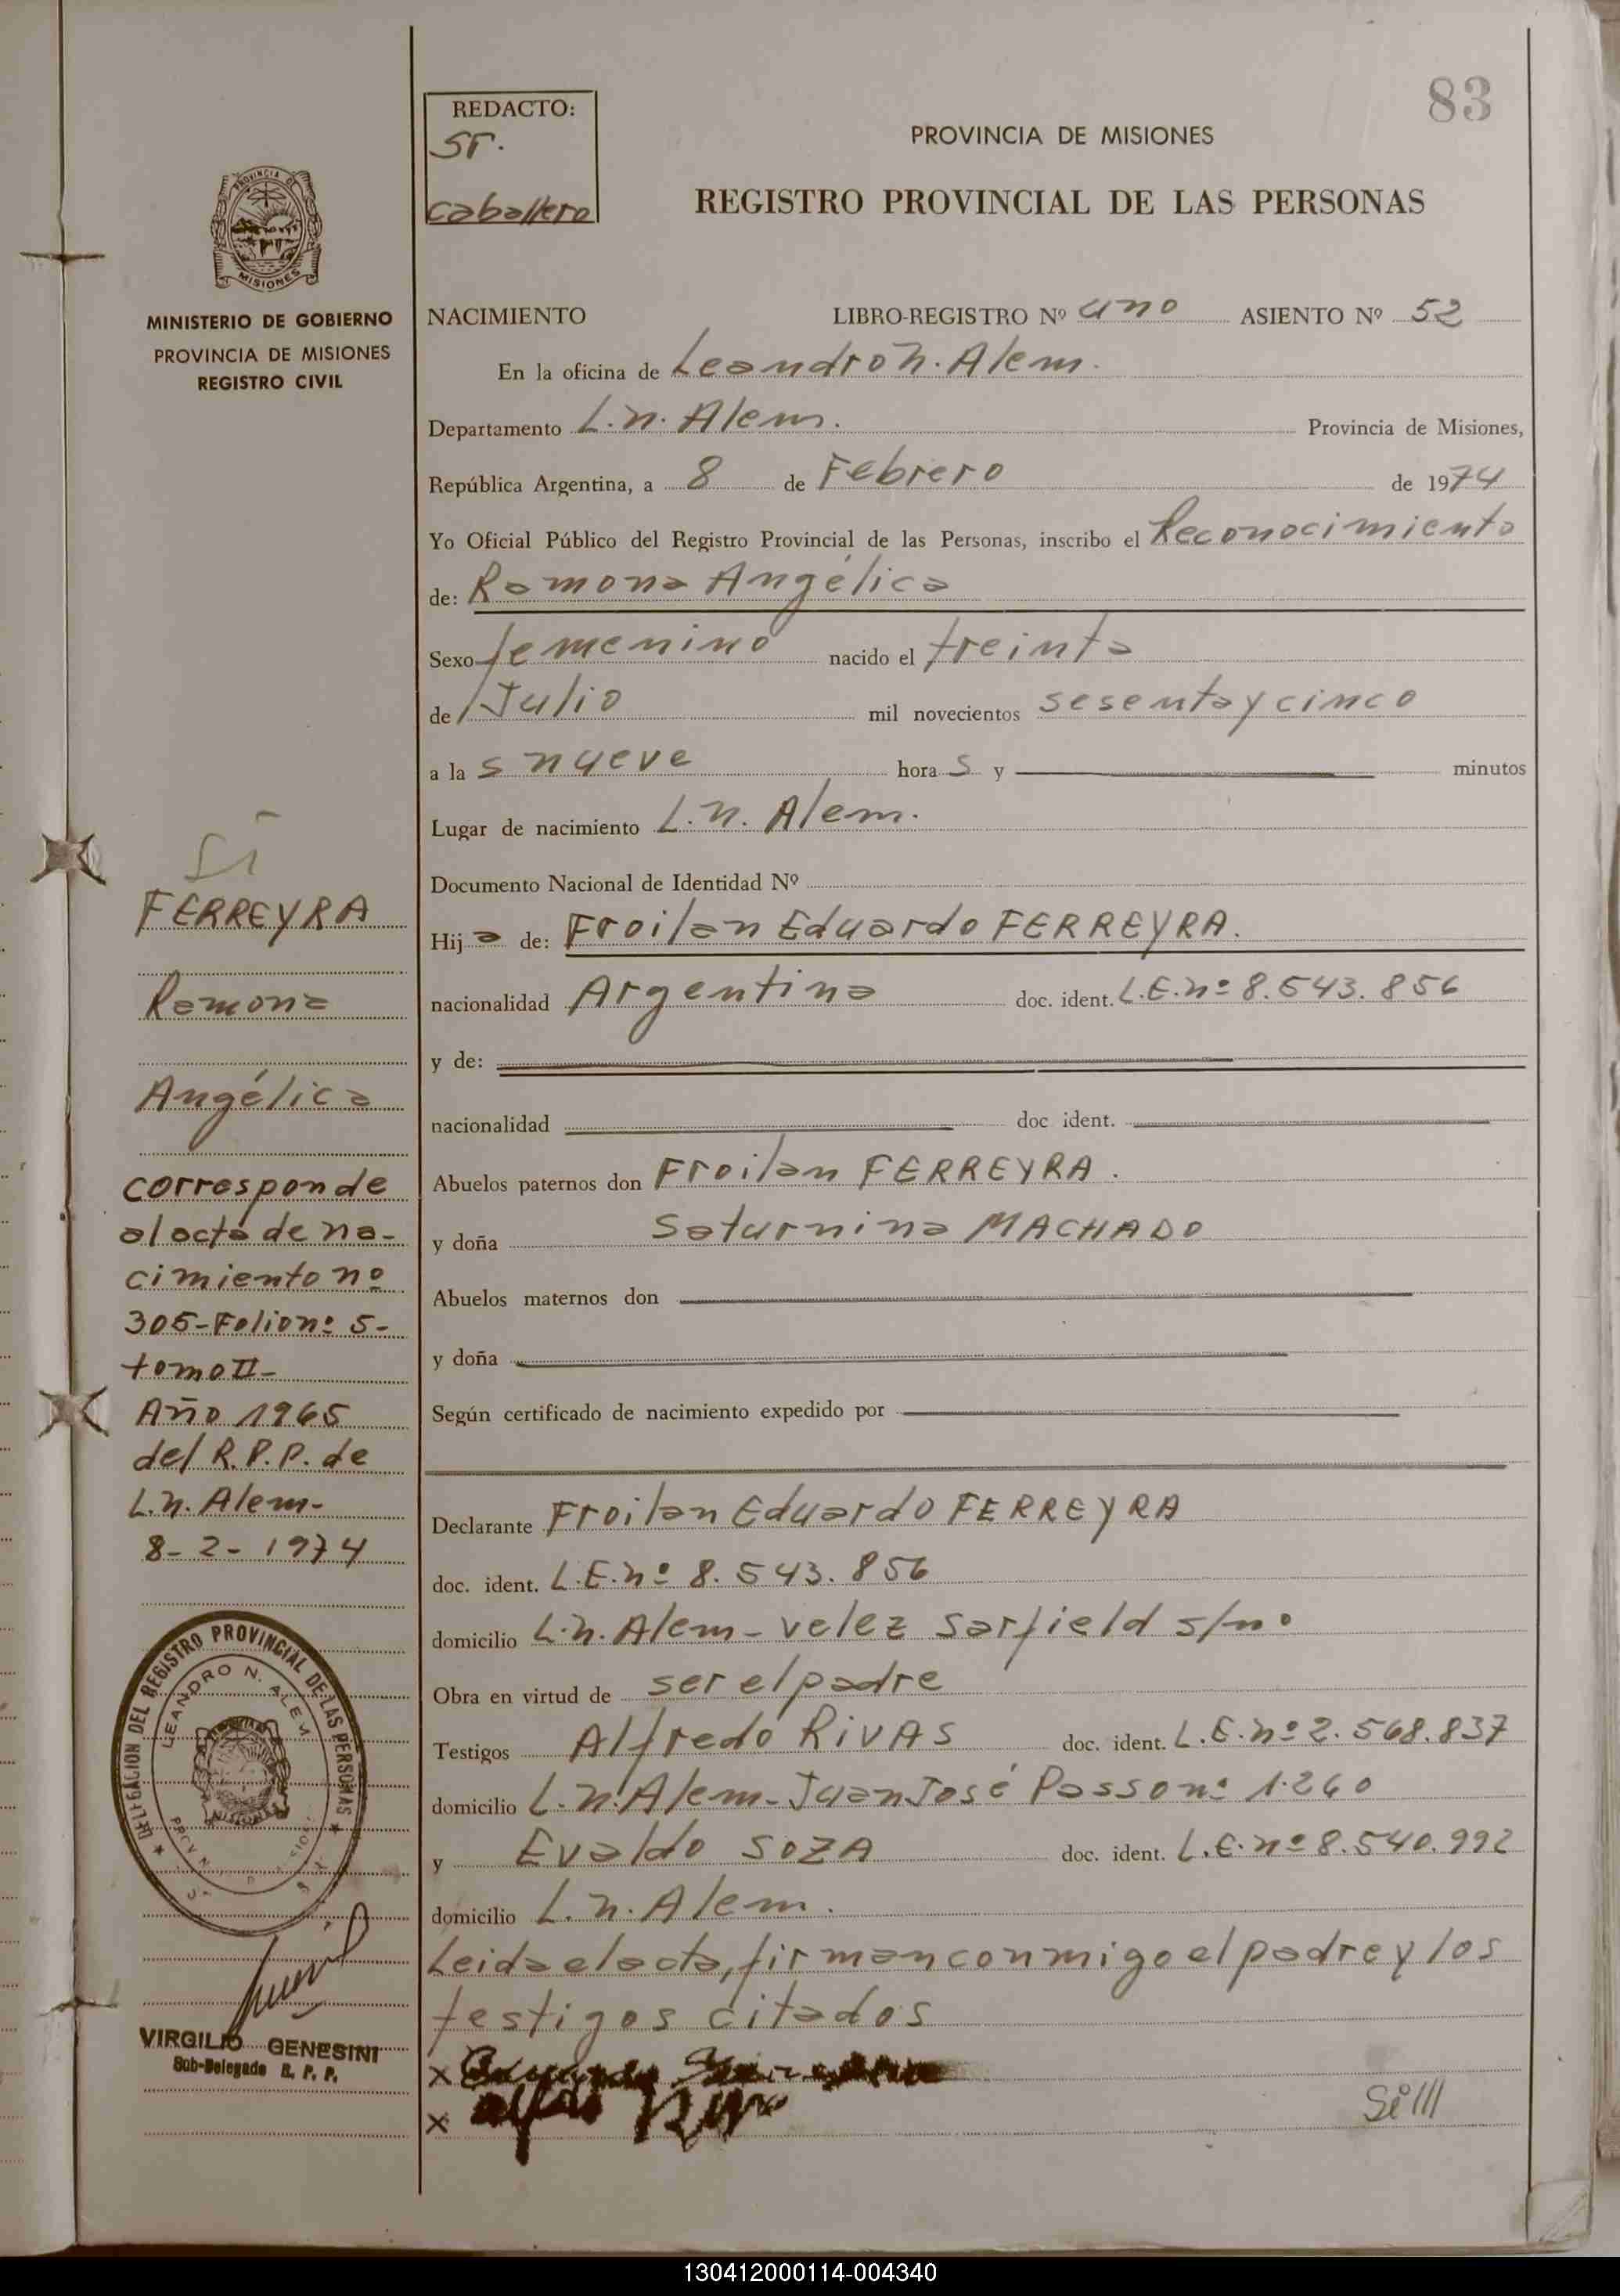 83
REDACTO:
Sr.
Caballero
PROVINCIA DE MISIONES
REGISTRO PROVINCIAL DE LAS PERSONAS
PROVINCIA DE
MISIONES
MINISTERIO DE GOBIERNO
PROVINCIA DE MISIONES
REGISTRO CIVIL
NACIMIENTO LIBRO-REGISTRO Nº uno ASIENTO Nº 52
En la oficina de Leandro N. Alem.
Departamento L.N. Alem. Provincia de Misiones,
República Argentina, a 8 de Febrero de 1974
Yo Oficial Público del Registro Provincial de las Personas, inscribo el Reconocimiento
de: Ramona Angélica
Sexo femenino nacido el treinta
de Julio mil novecientos sesenta y cinco
a la s nueve hora s y minutos
Lugar de nacimiento L.N. Alem.
Documento Nacional de Identidad Nº
Hij a de: Froilan Eduardo FERREYRA.
nacionalidad Argentina doc. ident. L.E. nº 8.543.856
y de:
nacionalidad doc ident.
Abuelos paternos don Froilan FERREYRA.
y doña Saturnina MACHADO
Abuelos maternos don
y doña
Según certificado de nacimiento expedido por
Declarante Froilan Eduardo FERREYRA
doc. ident. L.E. nº 8.543.856
domicilio L.N. Alem - Velez Sarfield s/nº
Obra en virtud de ser el padre
Testigos Alfredo RIVAS doc. ident. L.E. nº 2.568.837
domicilio L.N. Alem - Juan José Passo nº 1.240
y Evaldo SOZA doc. ident. L.E. nº 8.540.992
domicilio L.N. Alem.
Leida el acta, firman conmigo el padre y los
testigos citados
x
x
Si
FERREYRA
Ramona
Angélica
corresponde
al acta de na-
cimiento nº
305-Folio nº 5-
tomo II-
Año 1965
del R.P.P. de
L.N. Alem-
8-2-1974
DELEGACION DEL REGISTRO PROVINCIAL DE LAS PERSONAS
LEANDRO N. ALEM
VIRGILIO GENESINI
Sub-Delegado R. P. P.
130412000114-004340